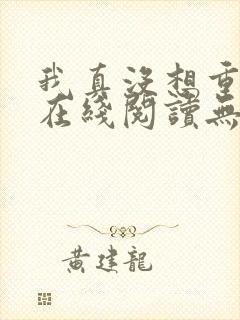 我真没想重
在綫閱讀無
黄建龍